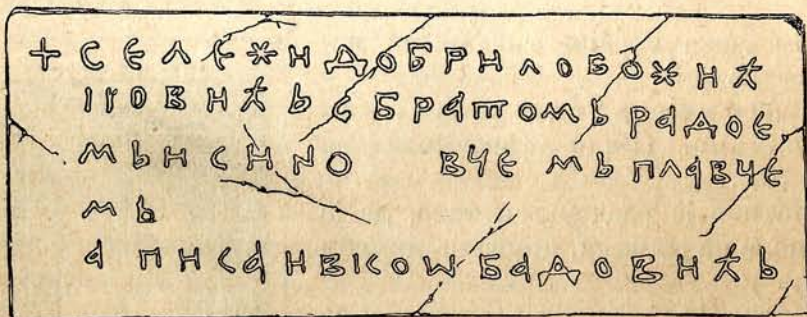 + СЕЛЕЖИДОБРИЛОБОЖИЋ
КОВИЋЬСБРАТОМЬРАДОЕ
МЬИСИНО ВЧЕМЬПЛАВЧЕ
МЬ
АПИСАИВКОШБАДОВИЋЬ